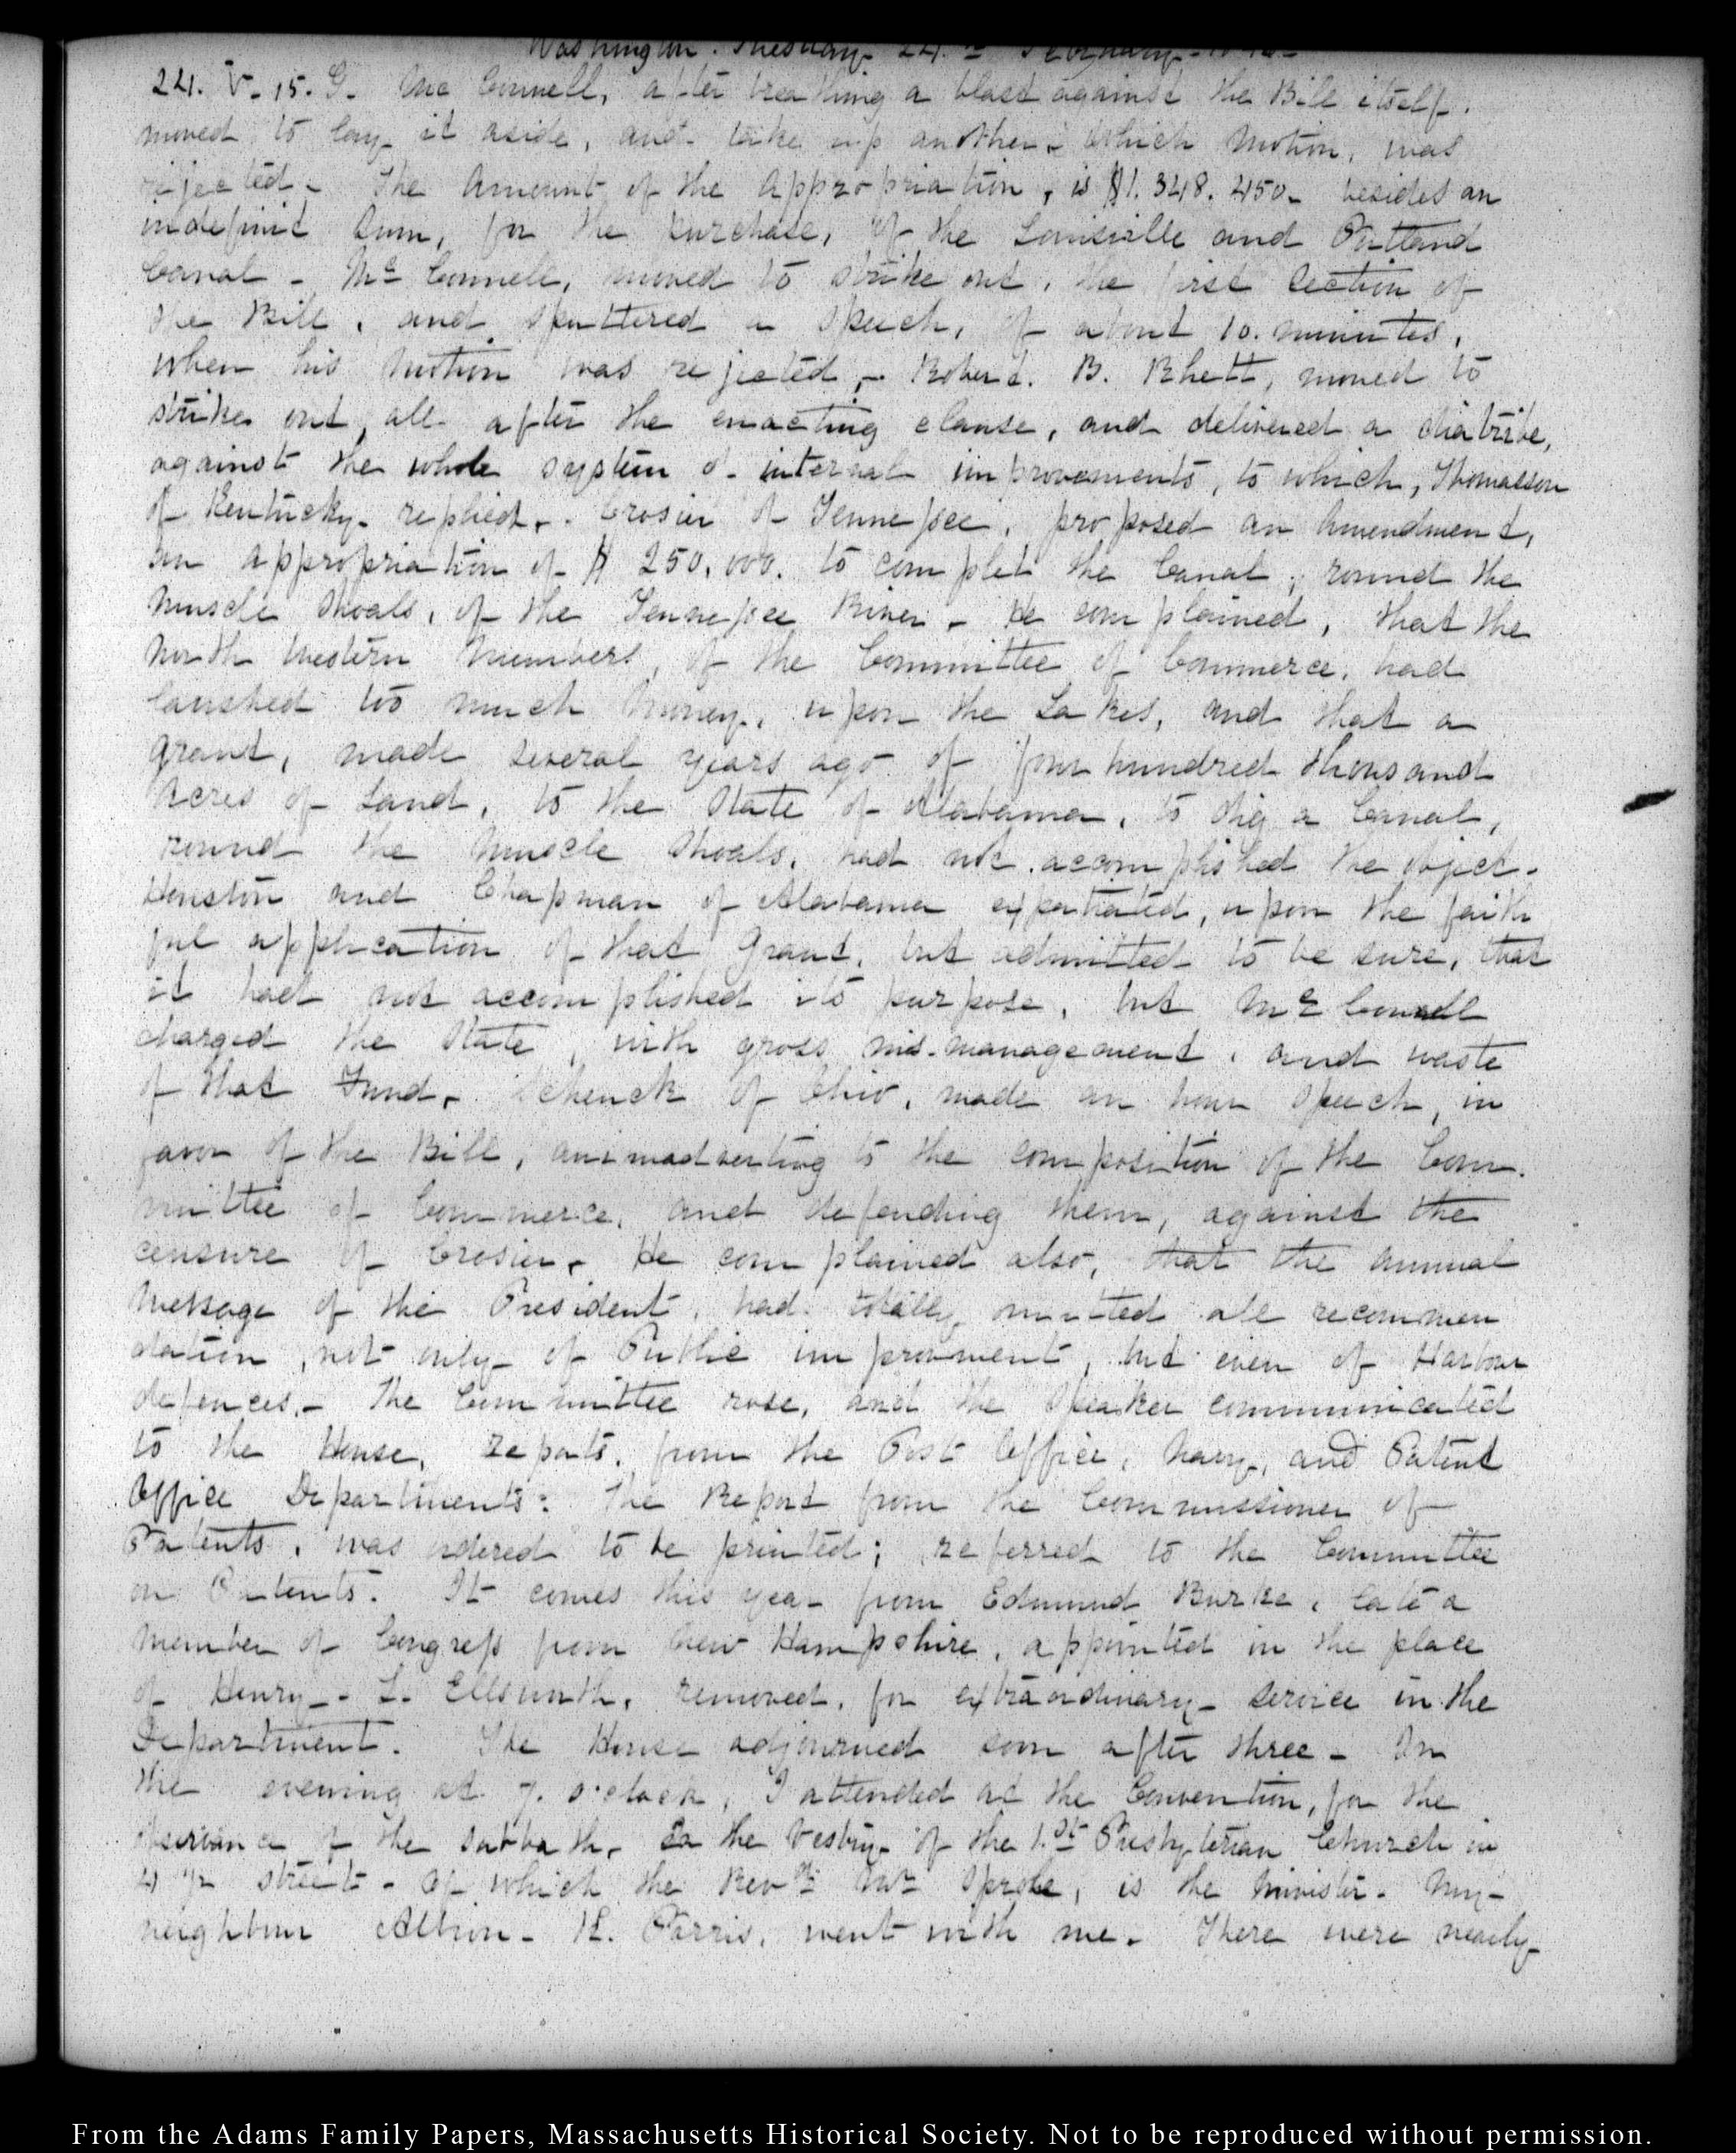 Washington. Tuesday 24.th February 1846
24. V. 15. G. Mc Connell, after breathing a blast against the Bill itself.
moved to lay it aside, and take up another. Which motion, was
rejected. The Amount of the Appropriation, is $1.348.450. besides an
indefinit Sum, for the purchase, of the Louisville and Portland
Canal. Mc Connell, moved to strike out, the first Section of
the Bill, and sputtered a speech, of about 10. minutes,
when his motion was rejected. Robert. B. Rhett, moved to
strike out all after the enacting clause, and delivered a diatribe,
against the whole system of internal improvements, to which, Thomasson
of Kentucky replied. Crosier of Tennessee, proposed an Amendment,
an appropriation of $ 250.000. to complete the Canal, round the
Muscle Shoals, of the Tennessee River. He complained, that the
North Western Members, of the Committee of Commerce, had
lavished too much Money, upon the Lakes, and that a
grant, made several years ago of four hundred thousand
Acres of Land, to the State of Alabama, to dig a Canal,
round the Muscle Shoals, had not accomplished the object.
Houston and Chapman of Alabama expatiated, upon the faith
ful application of that Grant, but admitted to be sure, that
it had not accomplished its purpose, but Mc Connell
charged the State, with gross mis-management, and waste
of that Fund. Schenck of Ohio, made an hour speech, in
favor of the Bill, animadverting to the composition of the Com.
mittee of Commerce, and defending them, against the
censure of Crosier. He complained also, that the annual
Message of the President, had totally omitted all recommen
dation, not only of Public improvment, but even of Harbour
defences. The Committee rose, and the Speaker communicated
to the House, reports, from the Post Office, Navy, and Patent
Office Departments: The Report from the Commissioner of
Patents, was ordered to be printed; referred to the Committee
on Patents. It comes this year from Edmund Burke, late a
Member of Congress from New Hampshire, appointed in the place
of Henry. L. Ellsworth, removed, for extraordinary service in the
Department. The House adjourned soon after three. In
the evening at 7. o'clock, I attended at the Convention, for the
observance of the Sabbath, in the Vestry of the 1.st Presbyterian Church in
4 1/2 street. Of which the Revd. Mr Sprole, is the Minister. My
neighbour Albion. K. Parris, went with me. There were nearly
From the Adams Family Papers, Massachusetts Historical Society. Not to be reproduced without permission.